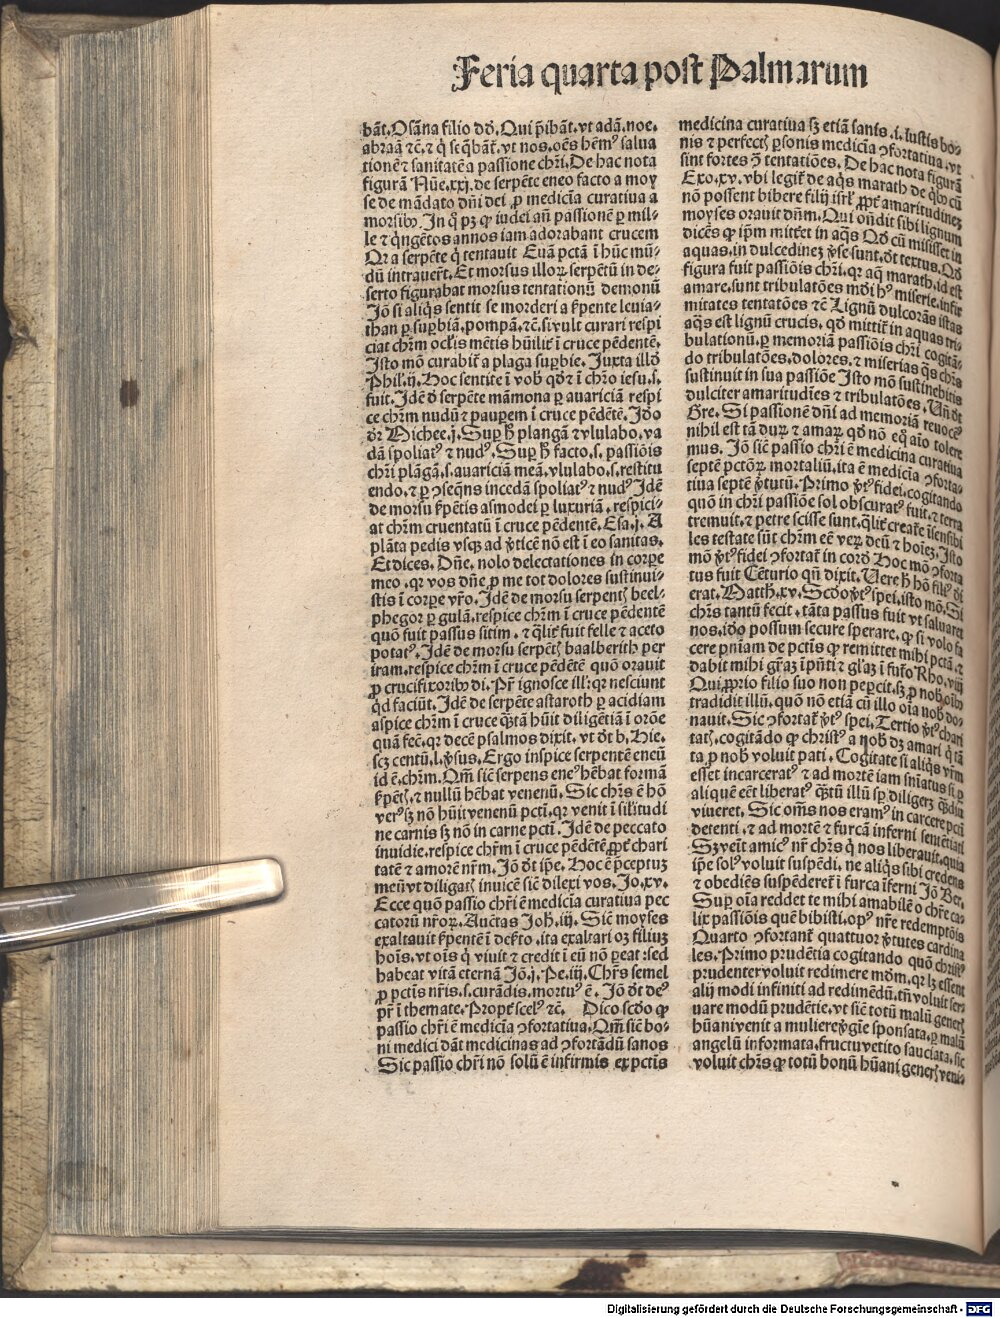 Feria quarta post Palmarum
bãt. Osãna filio dd. Qui p̄ibãt. vt adã. noe.
abraã ⁊c̃. ⁊ q̇ seq̃bãt. vt nos. oẽs hẽmꝰ salua
tionẽ ⁊ sanitatẽ a passione chr̃i. De hac nota
figurã Nũe. xxj. de serpẽte eneo facto a moy
se de mãdato dñi dei ꝓ medicĩa curatiua a
morsibꝰ. In q̇ pꝫ ꝙ iudei añ passionẽ ꝑ mil-
le ⁊ q̇ngẽtos annos iam adorabant crucem
Qꝛ a serpẽte q̇ tentauit Euã pctã ĩ hũc mũ-
dũ intrauer̃t. Et morsus illoꝝ serpẽtũ in de-
serto figurabat morsus tentationũ demonũ
Jõ si aliq̇s sentit se morderi a s̃pente leuia-
than ꝑ suꝑbiã, pompã, ⁊c̃. si vult curari respi
ciat chr̃m ocl̃is mẽtis hũilit̃ ĩ cruce pẽdentẽ.
Isto mõ curabit̃ a plaga suꝑbie. Juxta illd̃
Phil. ij. Hoc sentite ĩ vob̃ qd̃ ⁊ ĩ chr̃o iesu. s.
fuit. Idẽ d̃ serpẽte mãmona ꝑ auariciã respi
ce chr̃m nudũ ⁊ pauꝑem ĩ cruce pẽdẽtẽ. Idõ
dr̃ Michee. j. Suꝑ h̃ plangã ⁊ vlulabo. va
dã spoliatꝰ ⁊ nudꝰ. Suꝑ h̃ facto. s. passiõis
chr̃i plãgã. s. auariciã meã. vlulabo. s. restitu
endo. ⁊ ꝑ ↄseq̃ns incedã spoliatꝰ ⁊ nudꝰ Idẽ
de morsu s̃pẽtis asmodei ꝑ luxuriã. respici-
at chr̃m cruentatũ ĩ cruce pẽdentẽ. Esa. j. A
plãta pedis vsqꝫ ad ṽticẽ nõ est ĩ eo sanitas.
Et dices. Dñe. nolo delectationes in corꝑe
meo. qꝛ vos dñe ꝓ me tot dolores sustinui-
stis ĩ corꝑe vr̃o. Idẽ de morsu serpentꝭ beel-
phegor ꝑ gulã. respice chr̃m ĩ cruce pẽdentẽ
quõ fuit passus sitim. ⁊ q̃lit̃ fuit felle ⁊ aceto
potatꝰ. Idẽ de morsu serpẽtꝭ baalberith per
iram. respice chr̃m ĩ cruce pẽdẽtẽ quõ orauit
ꝓ crucifixoribꝰ di. Pr̃ ignosce ill̃: qꝛ nesciunt
q̇d faciũt. Idẽ de serpẽte astaroth ꝑ acidiam
aspice chr̃m ĩ cruce q̃tã hũit diligẽtiã ĩ orõe
quã fec̃. qꝛ decẽ psalmos dixit. vt dt̃ b. Hie.
scꝫ centũ. l. ṽsus. Ergo inspice serpentẽ eneũ
id ẽ. chr̃m. Qm̃ sic̃ serpens eneꝰ hẽbat formã
s̃pẽtꝭ. ⁊ nullũ hẽbat venenũ. Sic chr̃s ẽ hõ
verꝰ sꝫ nõ hũit venenũ pctĩ. qꝛ venit ĩ sil̃itudi
ne carnis sꝫ nõ in carne pctĩ. Idẽ de peccato
inuidie. respice chr̃m ĩ cruce pẽdẽtẽ ꝓpt̃ chari
tatẽ ⁊ amorẽ nr̃m. Jõ dt̃ ip̃e. Hoc ẽ p̃ceptuꝫ
meũ vt diligatꝭ inuicẽ sic̃ dilexi vos. Jo. xv.
Ecce quõ passio chr̃i ẽ medicĩa curatiua pec
catorũ nr̃oꝝ. Auctas Joh̃. iij. Sic̃ moyses
exaltauit s̃pentẽ ĩ des̃to. ita exaltari oꝫ filiuꝫ
hoĩs. vt oĩs q̇ viuit ⁊ credit ĩ eũ nõ ꝑeat sed
habeat vitã eternã Jõ. j. Pe. iij. Chr̃s semel
ꝓ pctĩs nr̃is. s. curãdis. mortuꝰ ẽ. Jõ dt̃ deꝰ
pr̃ ĩ themate. Propt̃ scelꝰ ⁊c̃. Dico scd̃o ꝙ
passio chr̃i ẽ medicĩa ↄfortatiua. Qm̃ sic̃ bo-
ni medici dãt medicinas ad ↄfortãdũ sanos
Sic passio chr̃i nõ solũ ẽ infirmis ex pctĩs
medicina curatiua sꝫ etiã sanis. i. iustis bo-
nis ⁊ perfectꝭ ꝑsonis medicĩa ↄfortatiua. vt
sint fortes ↄ̃ tentatiões. De hac nota figurã
Exo. xv. vbi legit̃ de aq̇s marath de q̇bꝰ cũ
nõ possent bibere filij isrl̃ ꝓpt̃ amaritudineꝫ
moyses orauit dñm. Qui oñdit sibi lignum
dicẽs ꝙ ip̃m mitt̃et in aq̇s Qd̃ cũ misisset in
aquas. in dulcedineꝫ ṽse sunt. dt̃ textus. Qd̃
figura fuit passiõis chr̃i. qꝛ aq̃ marath. id est
amare. sunt tribulatões mũdi hꝰ miserie. infir
mitates tentatões ⁊c̃ Lignũ dulcorãs istas
aq̇s est lignũ crucis. qd̃ mittit̃ in aquas tri-
bulationũ. ꝑ memoriã passiõis chr̃i cogitã-
do tribulatões. dolores. ⁊ miserias q̃s chr̃s
sustinuit in sua passiõe Isto mõ sustinebitis
dulciter amaritudĩes ⁊ tribulatões. Uñ dt̃
Gre. Si passionẽ dñi ad memoriã reuocẽꝰ
nihil est tã durꝫ ⁊ amarꝫ qd̃ nõ eq̃ aĩo tolere
mus. Jõ sic̃ passio chr̃i ẽ medicina curatiua
septẽ pctõꝝ mortaliũ. ita ẽ medicĩa ↄforta-
tiua septẽ ṽtutũ. Primo ṽtꝰ fidei. cogitando
quõ in chr̃i passiõe sol obscuratꝰ fuit. ⁊ terra
tremuit. ⁊ petre scisse sunt. q̃lit̃ creat̃e ĩsensibi
les testate sũt chr̃m eẽ verꝫ deũ ⁊ hoĩeꝫ. Isto
mõ ṽtꝰ fidei ↄfortat̃ in cord̃ Hoc mõ ↄforta
tus fuit Cẽturio qñ dixit. Uere h̃ hõ filiꝰ di
erat. Matth̃. xv. Scd̃o ṽtꝰ spei. isto mõ. Si
chr̃s tantũ fecit. tãta passus fuit vt saluaret
nos. idõ possum secure sperare. ꝙ si volo fa
cere pnĩam de pctĩs ꝙ remittet mihi pctã. ⁊
dabit mihi gr̃aꝫ ĩ pñti ⁊ gl̃aꝫ ĩ fut̃o Rho. viij
Qui ꝓprio filio suo non peꝑcit. sꝫ ꝓ nob̃ oĩbꝰ
tradidit illũ. quõ nõ etiã cũ illo oĩa nob̃ do-
nauit. Sic ↄfortat̃ ṽtꝰ spei. Tertio ṽtꝰ chari
tatꝭ. cogitãdo ꝙ christꝰ a nob̃ dꝫ amari q̇ tã
ta ꝓ nob̃ voluit pati. Cogitate si aliq̇s vr̃m
esset incarceratꝰ ⁊ ad mortẽ iam sñiatus si ꝑ
aliquẽ eẽt liberatꝰ q̃tũ illũ sꝑ diligerꝫ q̃diu
viueret. Sic om̃s nos eramꝰ in carcere pctĩ
detenti. ⁊ ad mortẽ ⁊ furcã inferni sententiati
Sꝫ venĩt amicꝰ nr̃ chr̃s q̇ nos liberauit. quia
ip̃e solꝰ voluit suspẽdi. ne aliq̇s sibi credens
⁊ obediẽs suspẽderet̃ ĩ furca ĩferni Jõ Ber.
Suꝑ oĩa reddet te mihi amabilẽ o chr̃e ca-
lix passiõis quẽ bibisti. opꝰ nr̃e redemptõis
Quarto ↄfortant̃ quattuor ṽtutes cardina
les. Primo prudẽtia cogitando quõ christꝰ
prudenter voluit redimere mũdm. qꝛ lꝫ essent
alij modi infiniti ad redimẽdũ. tñ voluit ser-
uare modũ prudẽtie. vt sic̃ totũ malũ generꝭ
hũani venit a muliere ṽgĩe sponsata. ꝑ malũ
angelũ informata. fructu vetito sauciata. sic
voluit chr̃s ꝙ totũ bonũ hũani generꝭ veni-
Digitalisierung gefördert durch die Deutsche Forschungsgemeinschaft - DFG